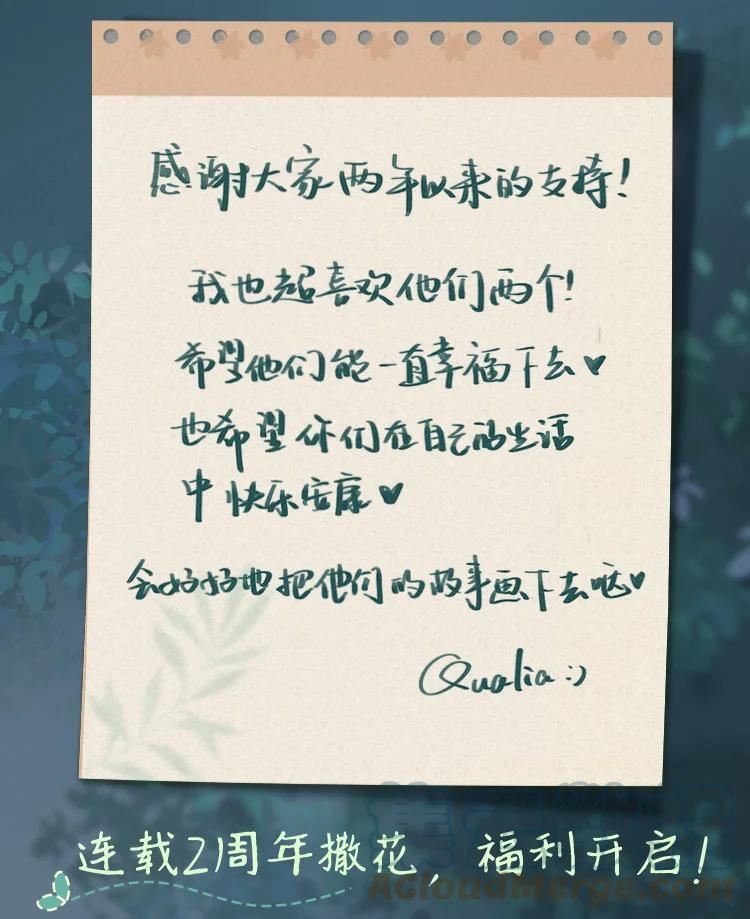 感谢大家两年以来的支持!
我也超喜欢他们两个!
希望他们能一直幸福下去♥
也希望你们在自己的生活
中快乐安康♥
会好好地把他们的故事画下去哒♥
Qualia :)
连载2周年撒花，福利开启!
ACloudMerge.com